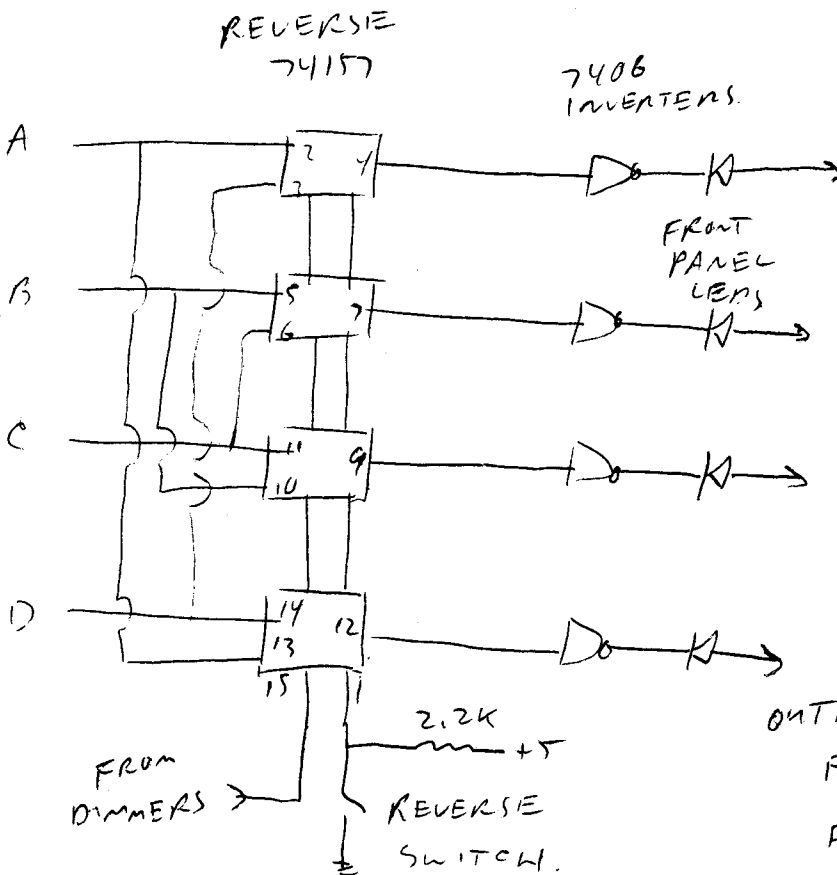 REVERSE
74157
7406
INVERTERS.
A
2
4
3
FRONT
PANEL
LEDS
B
5
7
6
C
11
9
10
D
14
12
13
15
1
2.2K
+5
FROM
DIMMERS
REVERSE
SWITCH.